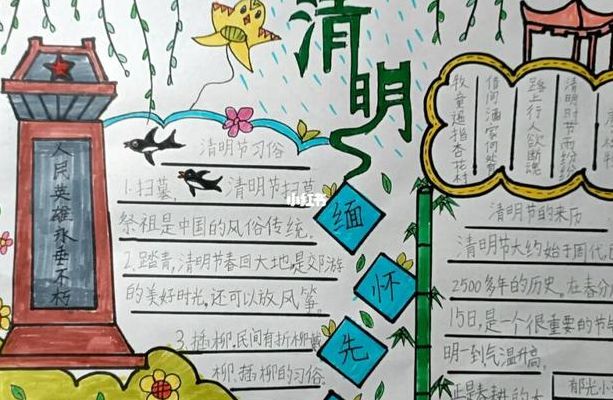 清明
人民英雄永垂不朽
清明节习俗
1.扫墓,清明节扫墓
祭祖是中国的风俗传统。
2.踏青,清明节春回大地,是郊游
的美好时光,还可以放风筝。
3.插柳.民间有折柳戴
柳、插柳的习俗。
缅
怀
先
清明时节雨纷纷
路上行人欲断魂
借问酒家何处
牧童遥指杏花村
清明节的来历
清明节大约始于周代,
2500多年的历史。在春分
15日,是一个很重要的节
明一到气温升高。
正是春耕的大
小红书